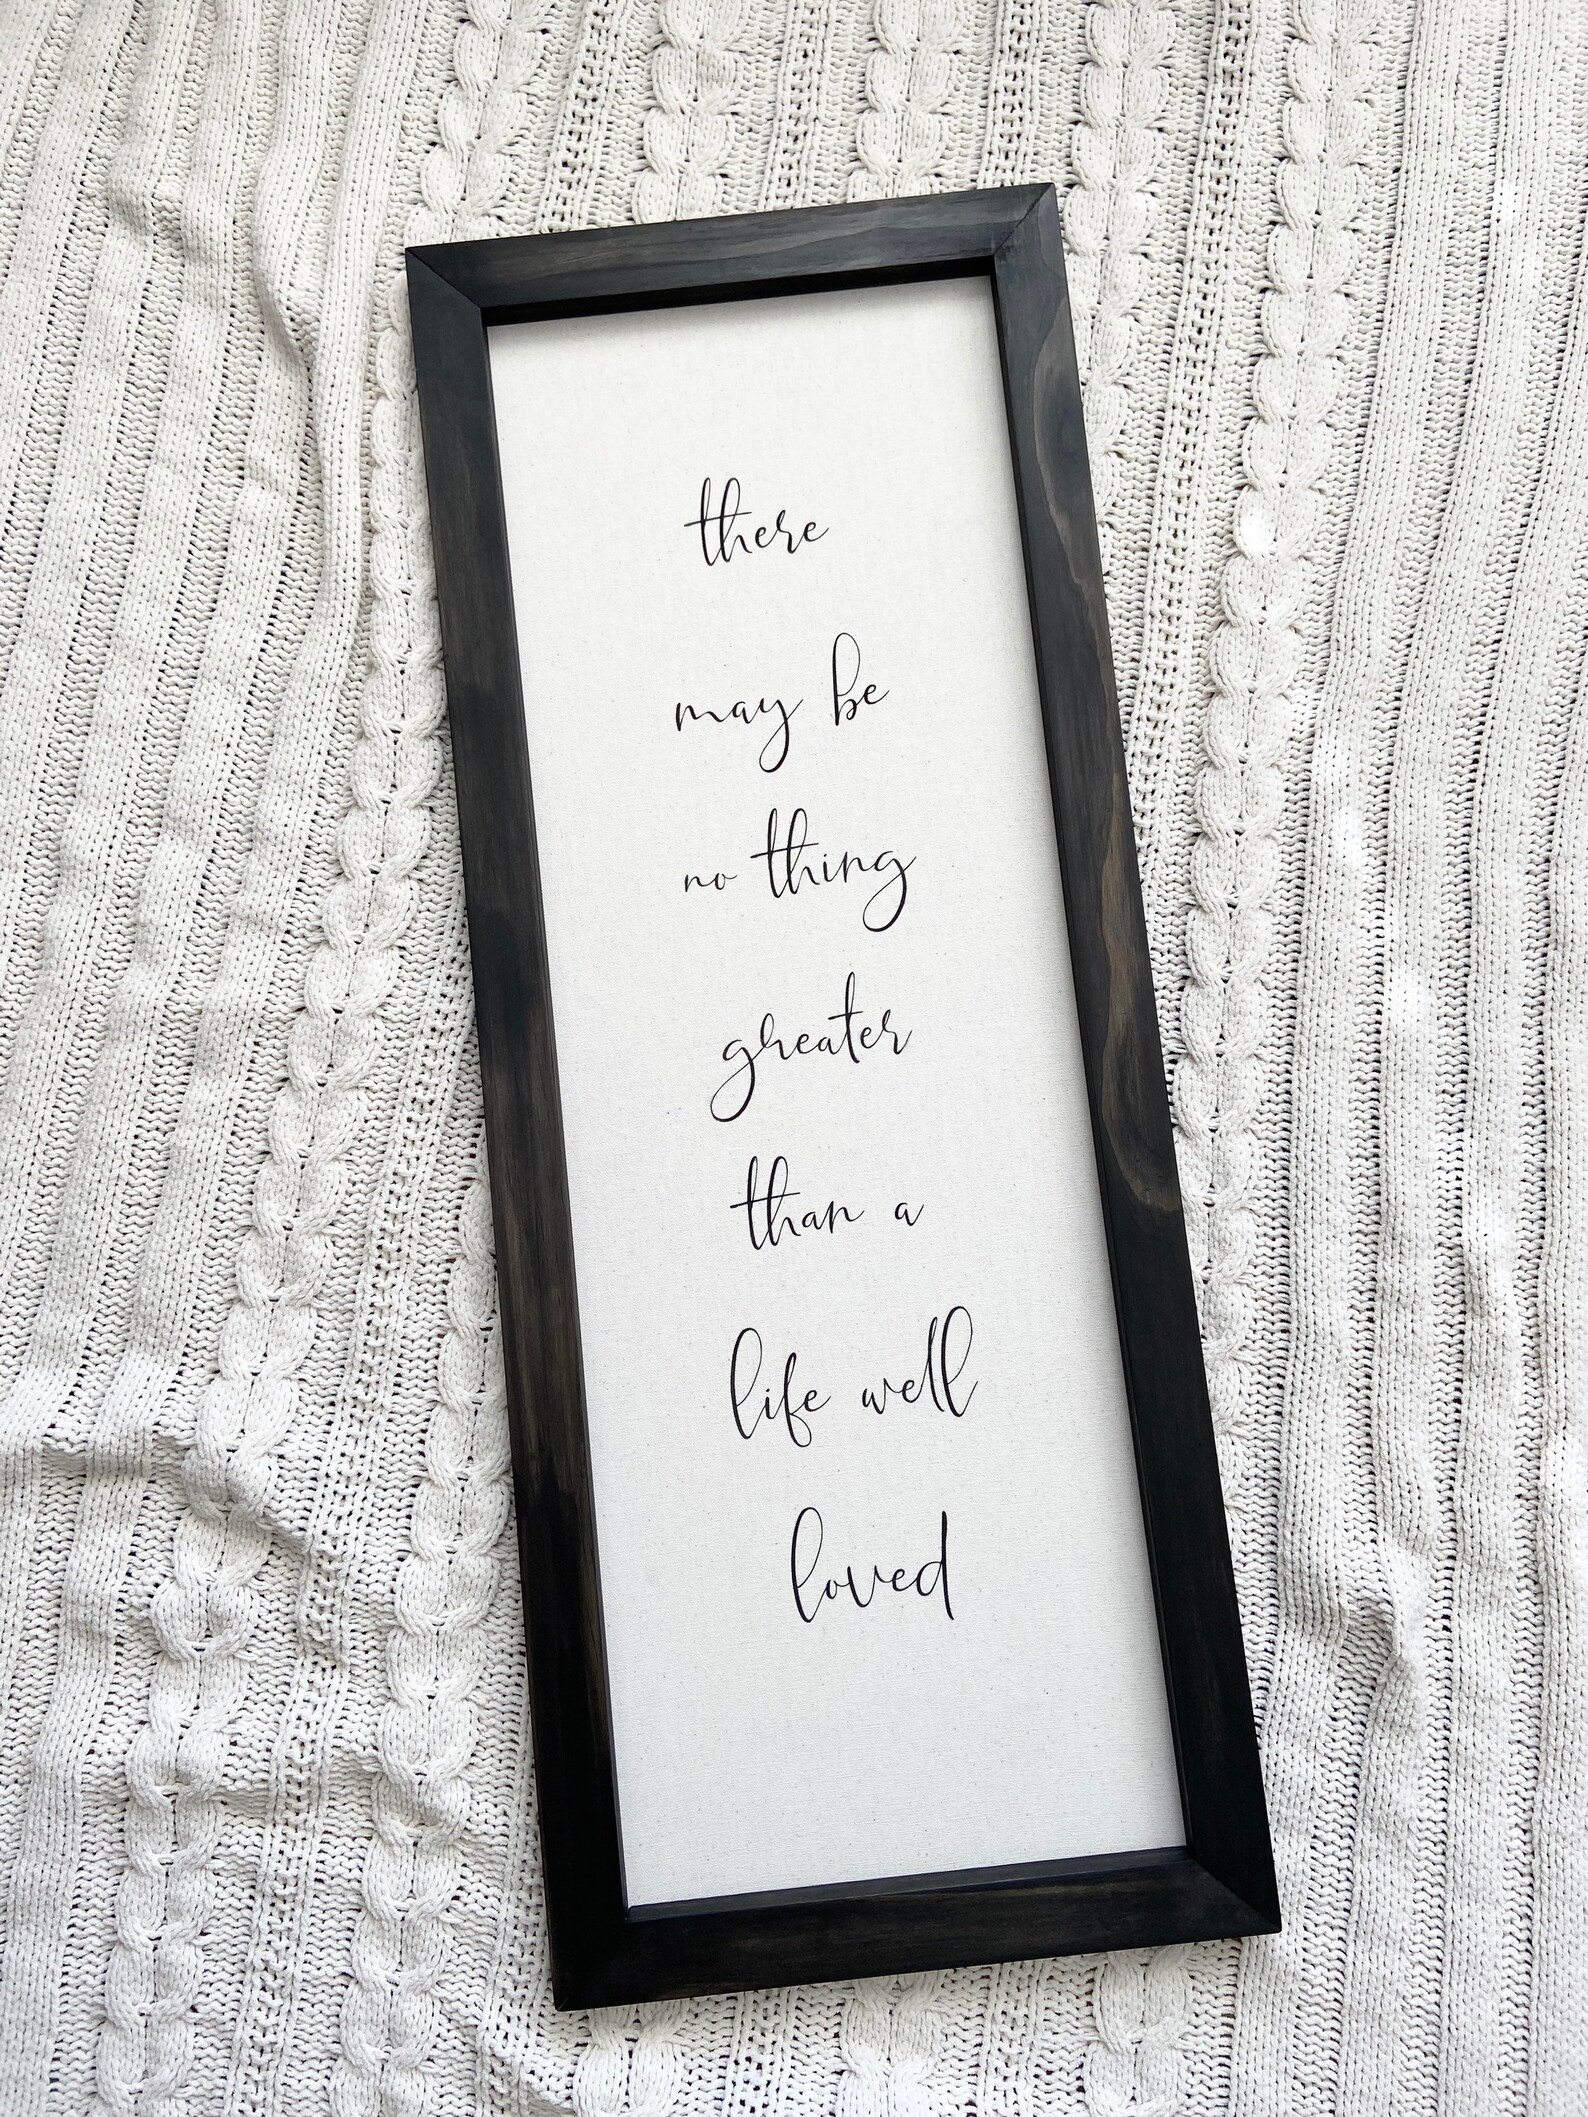 there
may be
no thing
greater
than a
life well
loved